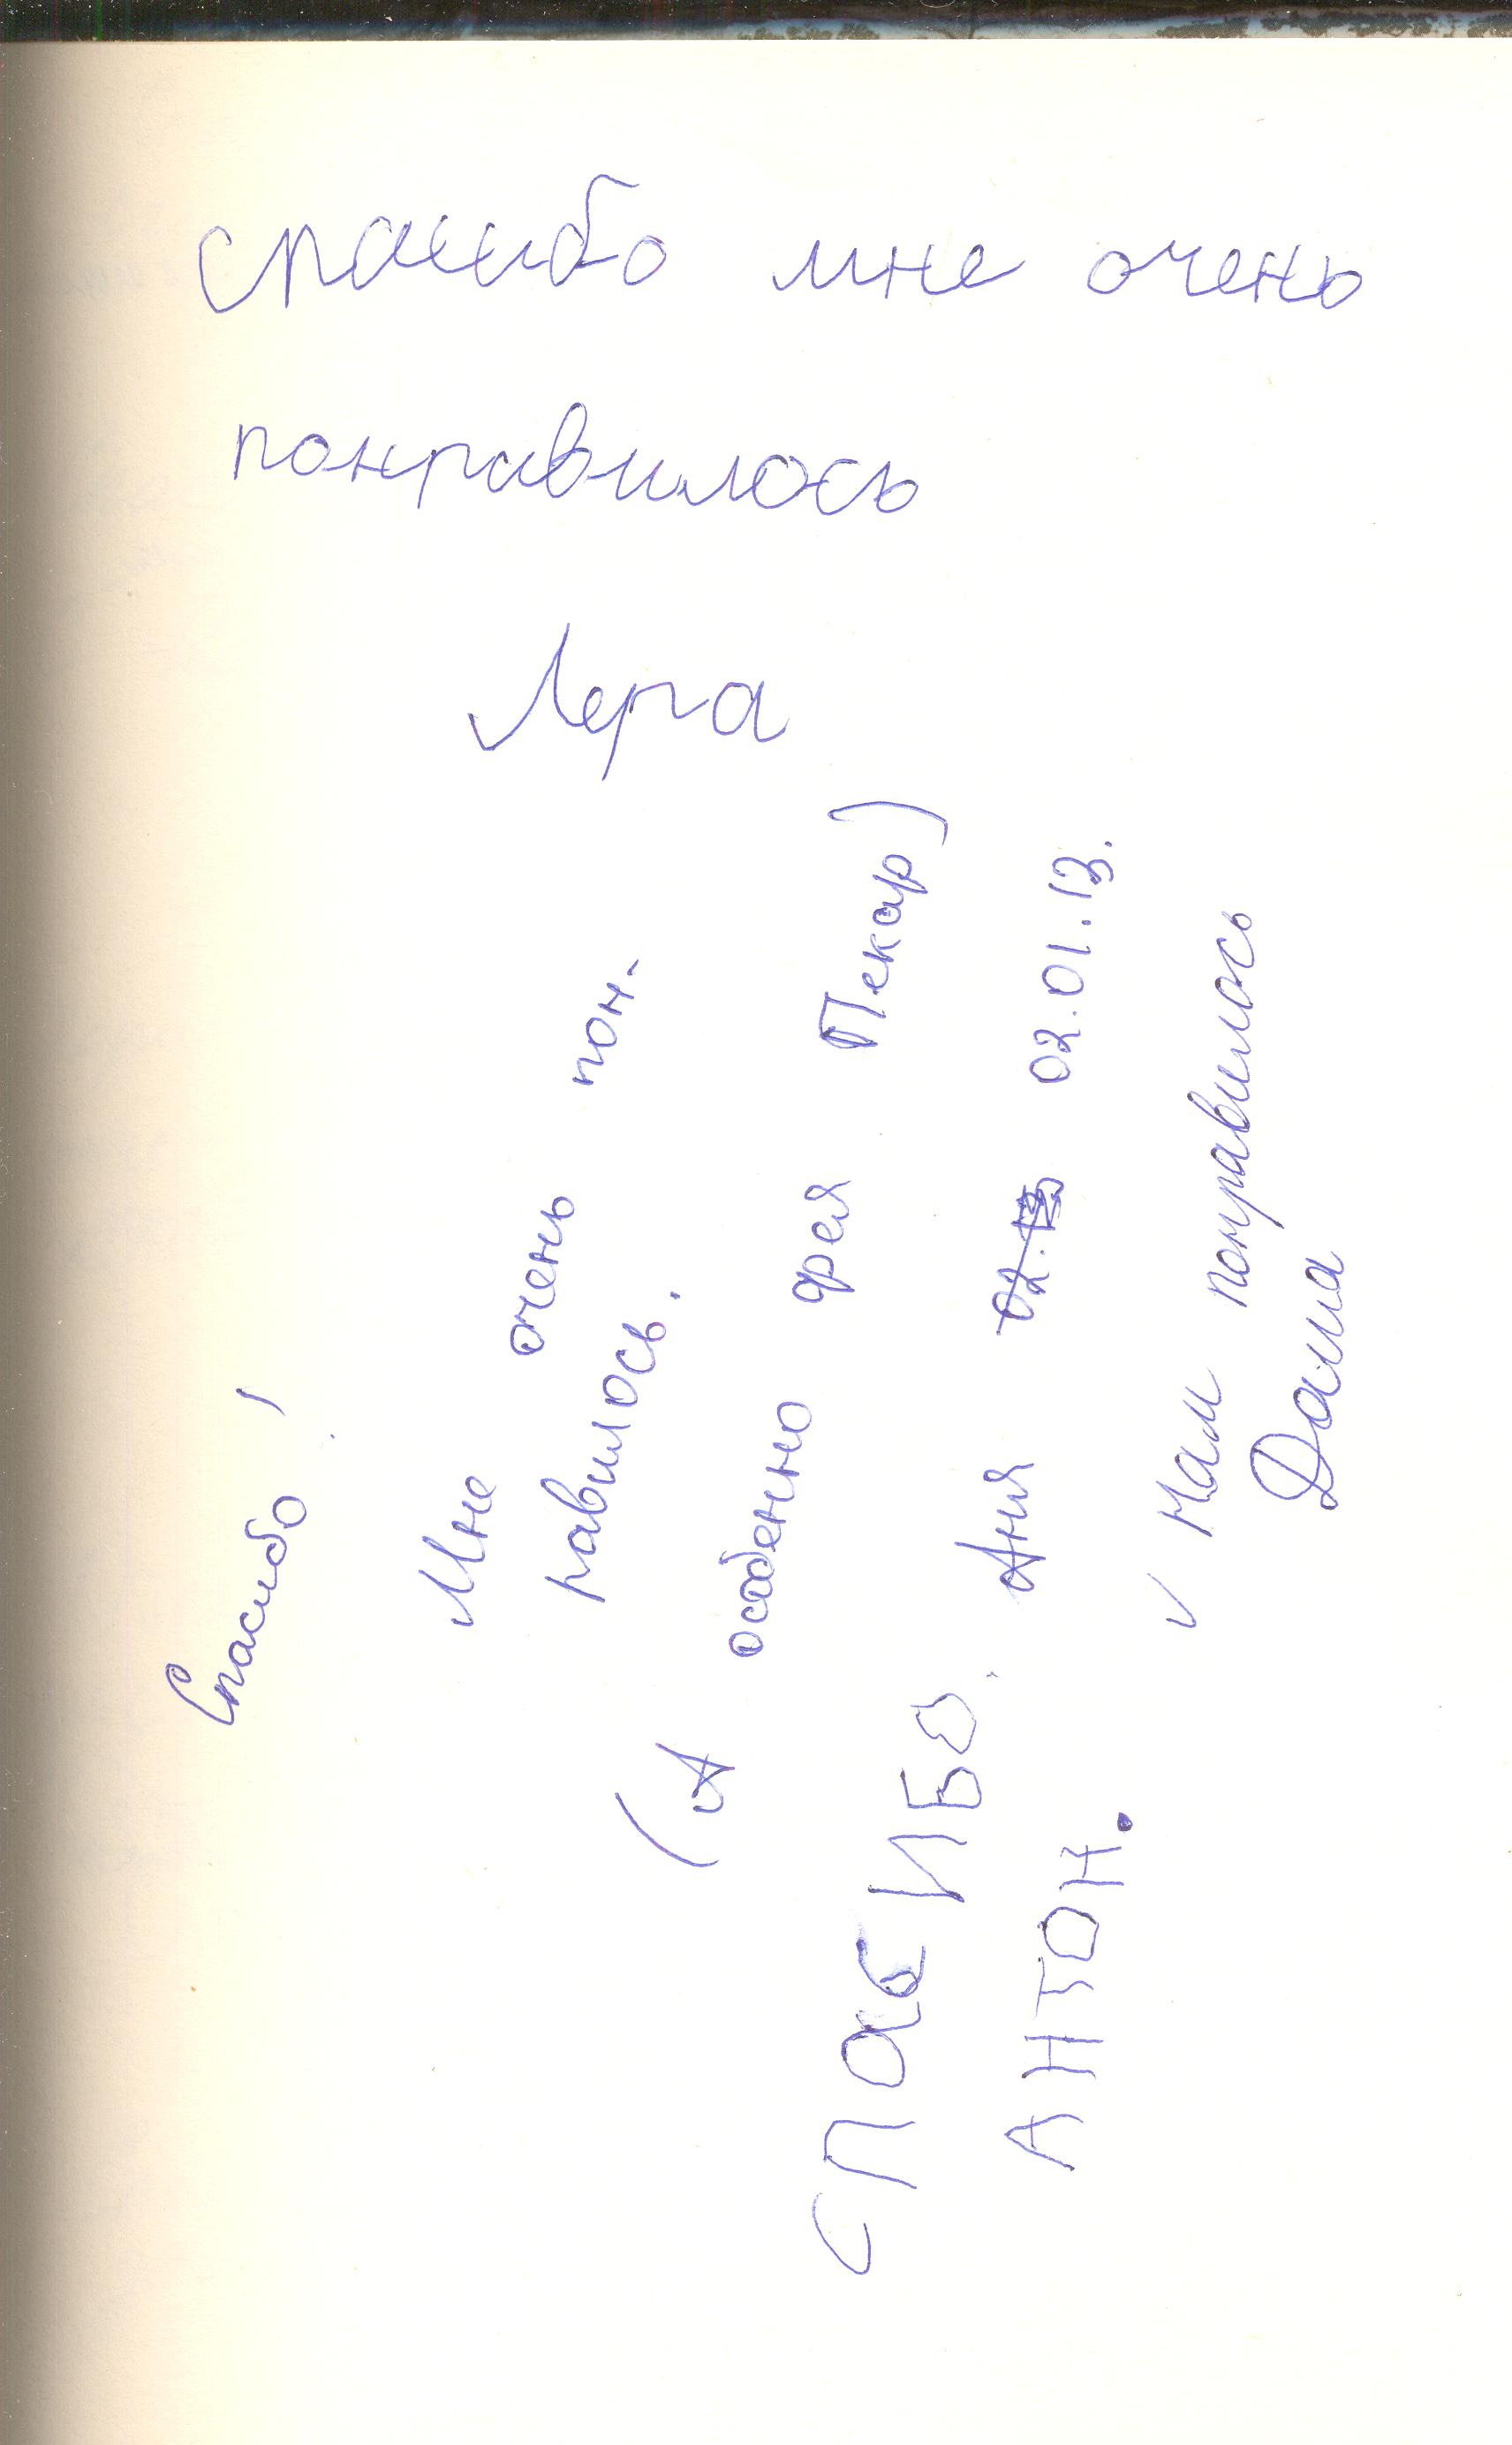 спасибо мне очень
понравилось
Лера
Спасибо!
Мне очень пон-
равилось.
(А особенно фея Пекар)
Аня 02.01.13.
СПасИБО.
АНТОН.
Нам понравилось
Даша